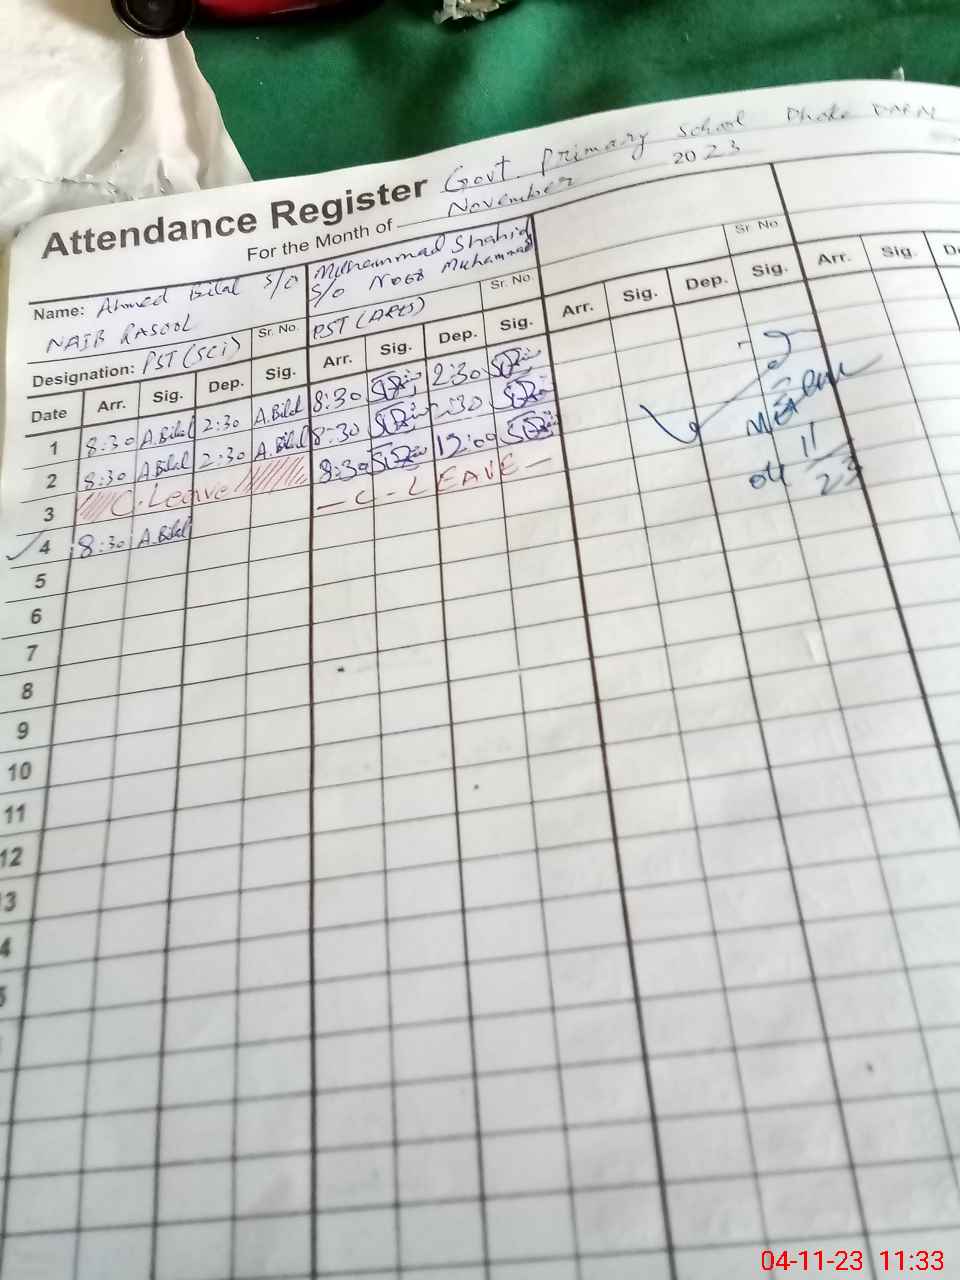 Attendance Register Govt. Primary School Dhoke DARN
For the Month of November 2023
Name: Ahmed Bilal S/O NAIB RASOOL
Muhammad Shahid S/o Noor Muhammad
Designation: PST (SCi) Sr. No. PST (ARTS) Sr. No. Sr. No
Date Arr. Sig. Dep. Sig. Arr. Sig. Dep. Sig. Arr. Sig. Dep. Sig. Arr. Sig.
1 8:30 A.Bilal 2:30 A.Bilal 8:30 2:30
2 8:30 A.Bilal 2:30 A.Bilal 8:30 2:30
3 C.Leave 8:30 12:00
4 8:30 A.Bilal — C - LEAVE —
04/11/23
5
6
7
8
9
10
11
12
13
4
5
04-11-23 11:33